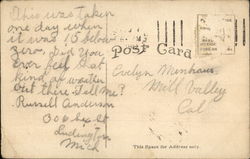 This was taken
one day when
it was 15 below
zero. Did you
ever feel that
kind of weather
out there. Tell Me?
Russell Anderson
Ludington
Mich
Post Card
Evelyn
Mill Valley
Cal
This Space for Address only.